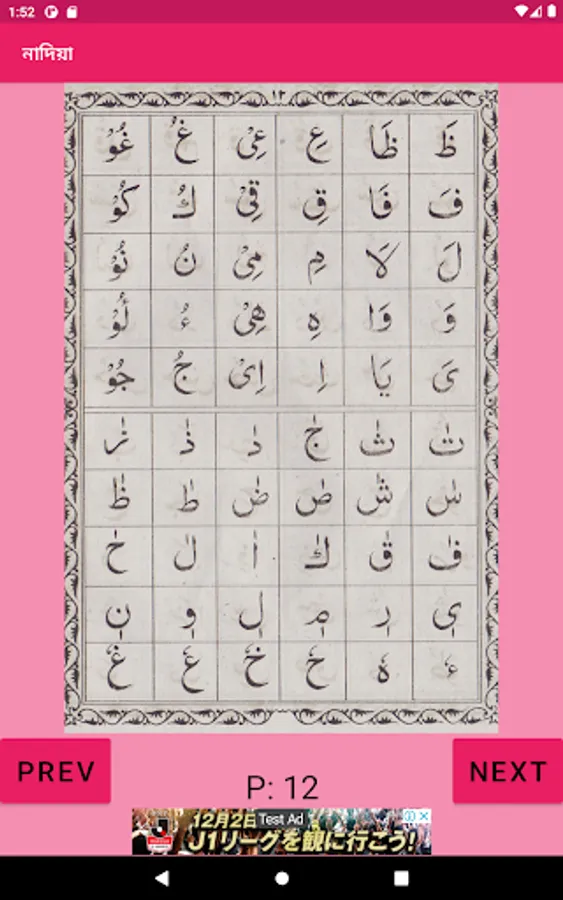 1:52
নাদিয়া
١٢
ظَ ظَا عِ عِىْ غُ غُوْ
فَ فَا قِ قِىْ كُ كُوْ
لَ لَا مِ مِىْ نُ نُوْ
وَ وَا هِ هِىْ ءُ ءُوْ
ىَ يَا اِ اِىْ جُ جُوْ
تٰ ثٰ جٰ دٰ ذٰ زٰ
سٰ شٰ صٰ ضٰ طٰ ظٰ
فٰ قٰ كٰ اٰ لٰ حٰ
يٖ رٖ مٖ لٖ وٖ نٖ
PREV
P: 12
NEXT
12月2日
Test Ad
J1リーグを観に行こう!